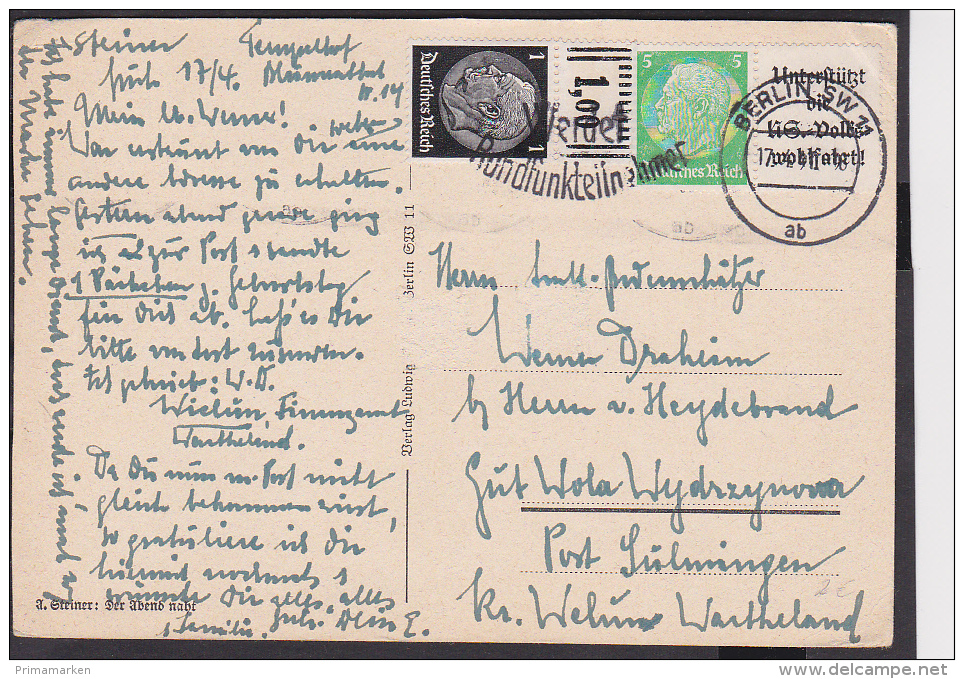 Steiner Tempelhof
17/4. Blumenthal
Mein lb. Werner!
War erstaunt von Dir eine
andere Adresse zu erhalten.
Gestern abend gerade ging
ich zur Post sandte
1 Päckchen z. Geburtstag
für Dich ab. Lass es Dir
bitte von dort zusenden.
Ich schrieb: W. D.
Wielun, Finanzamt
Wartheland.
Da Du nun m. Post nicht
gleich bekommen wirst,
so gratuliere ich Dir
hiermit nochmals
wünsche Dir alles, alles
Familie.
Ich habe immer lange Dienst,
A. Steiner: Der Abend naht
Verlag Ludwig Berlin SW 11
Deutsches Reich
1 1
1,00
5 5
Deutsches Reich
Unterstützt
die
NS.-Volks-
wohlfahrt!
Werdet
Rundfunkteilnehmer
BERLIN SW 11
ab
Herrn
Werner Draheim
bei Herrn v. Heydebrand
Gut Wola Wydrzynowa
Post Sulmingen
Kr. Welun Wartheland
Primamarken
www.delcampe.net